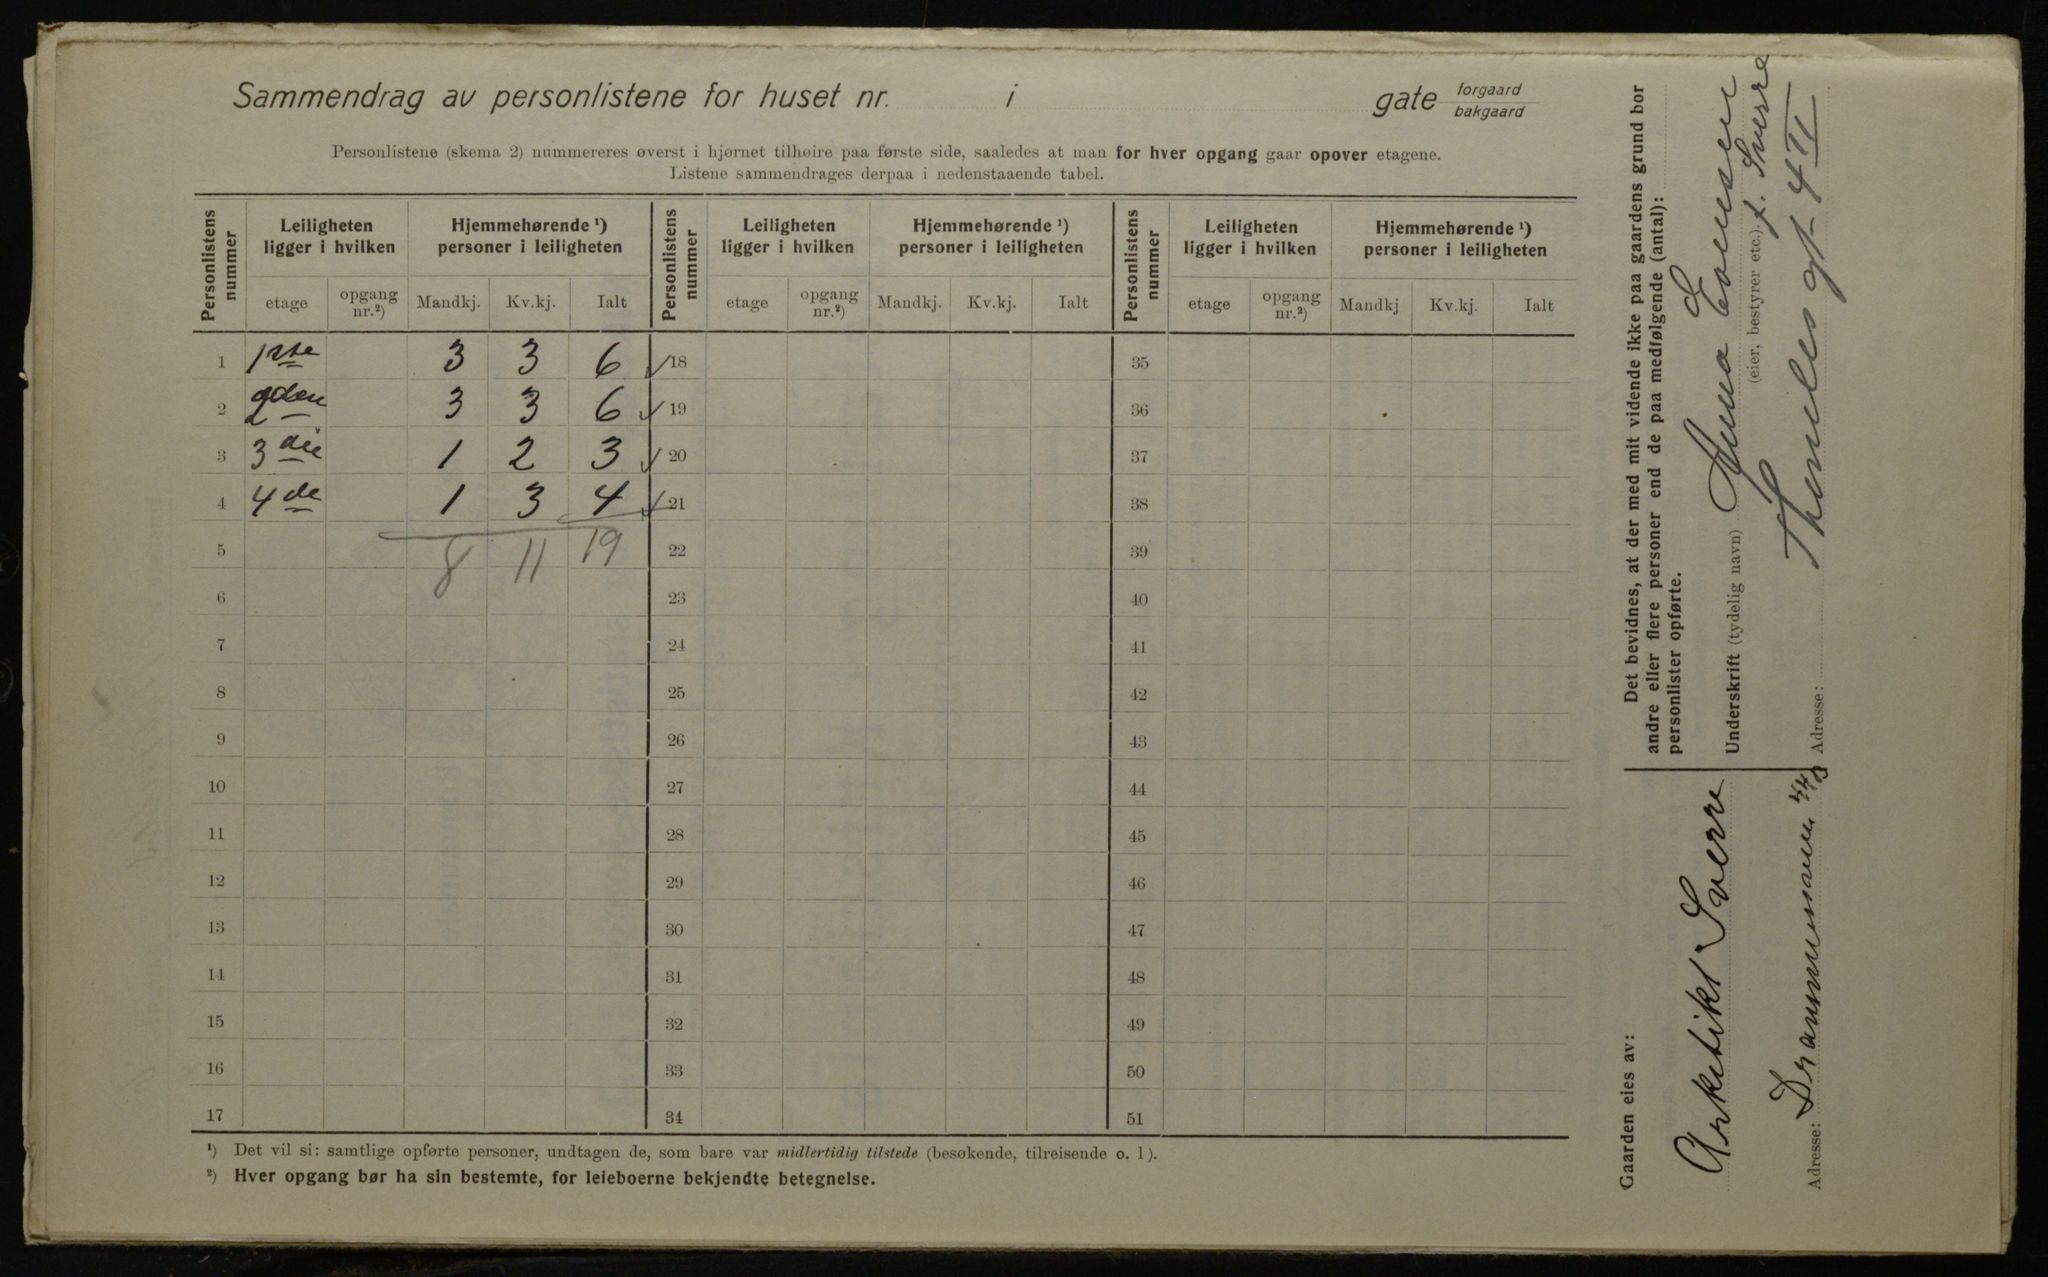 Sammendrag av personlistene for huset nr. i gate forgaard bakgaard
Personlistene (skema 2) nummereres øverst i hjørnet tilhøire paa første side, saaledes at man for hver opgang gaar opover etagene.
Listene sammendrages derpaa i nedenstaaende tabel.
Personlistens nummer
Leiligheten ligger i hvilken
Hjemmehørende ¹) personer i leiligheten
Personlistens nummer
Leiligheten ligger i hvilken
Hjemmehørende ¹) personer i leiligheten
Personlistens nummer
Leiligheten ligger i hvilken
Hjemmehørende ¹) personer i leiligheten
etage opgang nr.²) Mandkj. Kv.kj. Ialt etage opgang nr.²) Mandkj. Kv.kj. Ialt etage opgang nr.²) Mandkj Kv.kj. Ialt
1 1ste 3 3 6 18 35
2 2den 3 3 6 19 36
3 3die 1 2 3 20 37
4 4de 1 3 4 21 38
5 8 11 19 22 39
6 23 40
7 24 41
8 25 42
9 26 43
10 27 44
11 28 45
12 29 46
13 30 47
14 31 48
15 32 49
16 33 50
17 34 51
¹) Det vil si: samtlige opførte personer, undtagen de, som bare var midlertidig tilstede (besøkende, tilreisende o. l).
²) Hver opgang bør ha sin bestemte, for leieboerne bekjendte betegnelse.
Det bevidnes, at der med mit vidende ikke paa gaardens grund bor
andre eller flere personer end de paa medfølgende (antal):
personlister opførte.
Underskrift (tydelig navn) Anna
(eier, bestyrer etc.). f. Sverre
Adresse: gt 4 II
Gaarden eies av:
Arkitikt Sverre
Adresse: Drammensveien